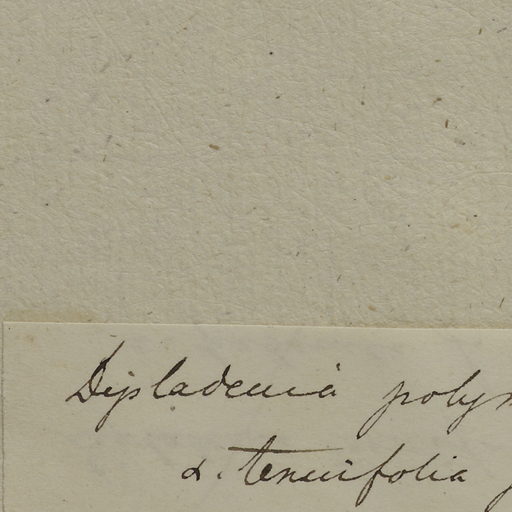 Dipladenia polym
α. tenuifolia